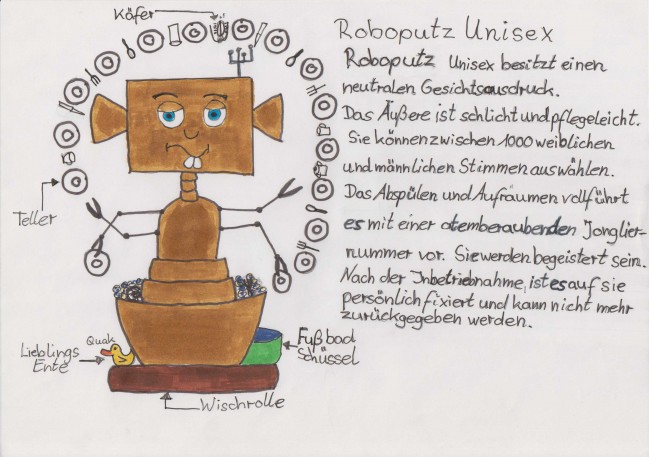 Käfer
Roboputz Unisex
Roboputz Unisex besitzt einen
neutralen Gesichtsausdruck.
Das Äußere ist schlicht und pflegeleicht.
Sie können zwischen 1000 weiblichen
und männlichen Stimmen auswählen.
Das Abspülen und Aufräumen vollführt
es mit einer atemberaubenden Jonglier-
nummer vor. Sie werden begeistert sein.
Nach der Inbetriebnahme, ist es auf sie
persönlich fixiert und kann nicht mehr
zurückgegeben werden.
Teller
Quak
Lieblings
Ente
Fußbad
Schüssel
Wischrolle